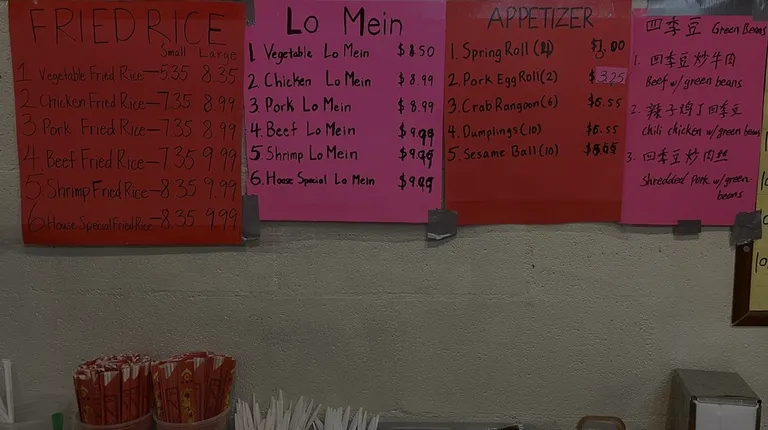 FRIED RICE
Small Large
1 Vegetable Fried Rice—5.35 8.35
2 Chicken Fried Rice—7.35 8.99
3 Pork Fried Rice—7.35 8.99
4 Beef Fried Rice—7.35 9.99
5 Shrimp Fried Rice—8.35 9.99
6 House Special Fried Rice—8.35 9.99
Lo Mein
1 Vegetable Lo Mein $8.50
2. Chicken Lo Mein $8.99
3. Pork Lo Mein $8.99
4. Beef Lo Mein $9.99
5. Shrimp Lo Mein $9.99
6. House Special Lo Mein $9.99
APPETIZER
1. Spring Roll
2. Pork Egg Roll (2) $3.25
3. Crab Rangoon (6) $6.55
4. Dumplings (10) $6.55
5. Sesame Ball (10)
四季豆 Green Beans
1. 四季豆炒牛肉
Beef w/ green beans
2. 辣子鸡丁四季豆
chili chicken w/ green beans
3. 四季豆炒肉丝
Shredded Pork w/ green beans